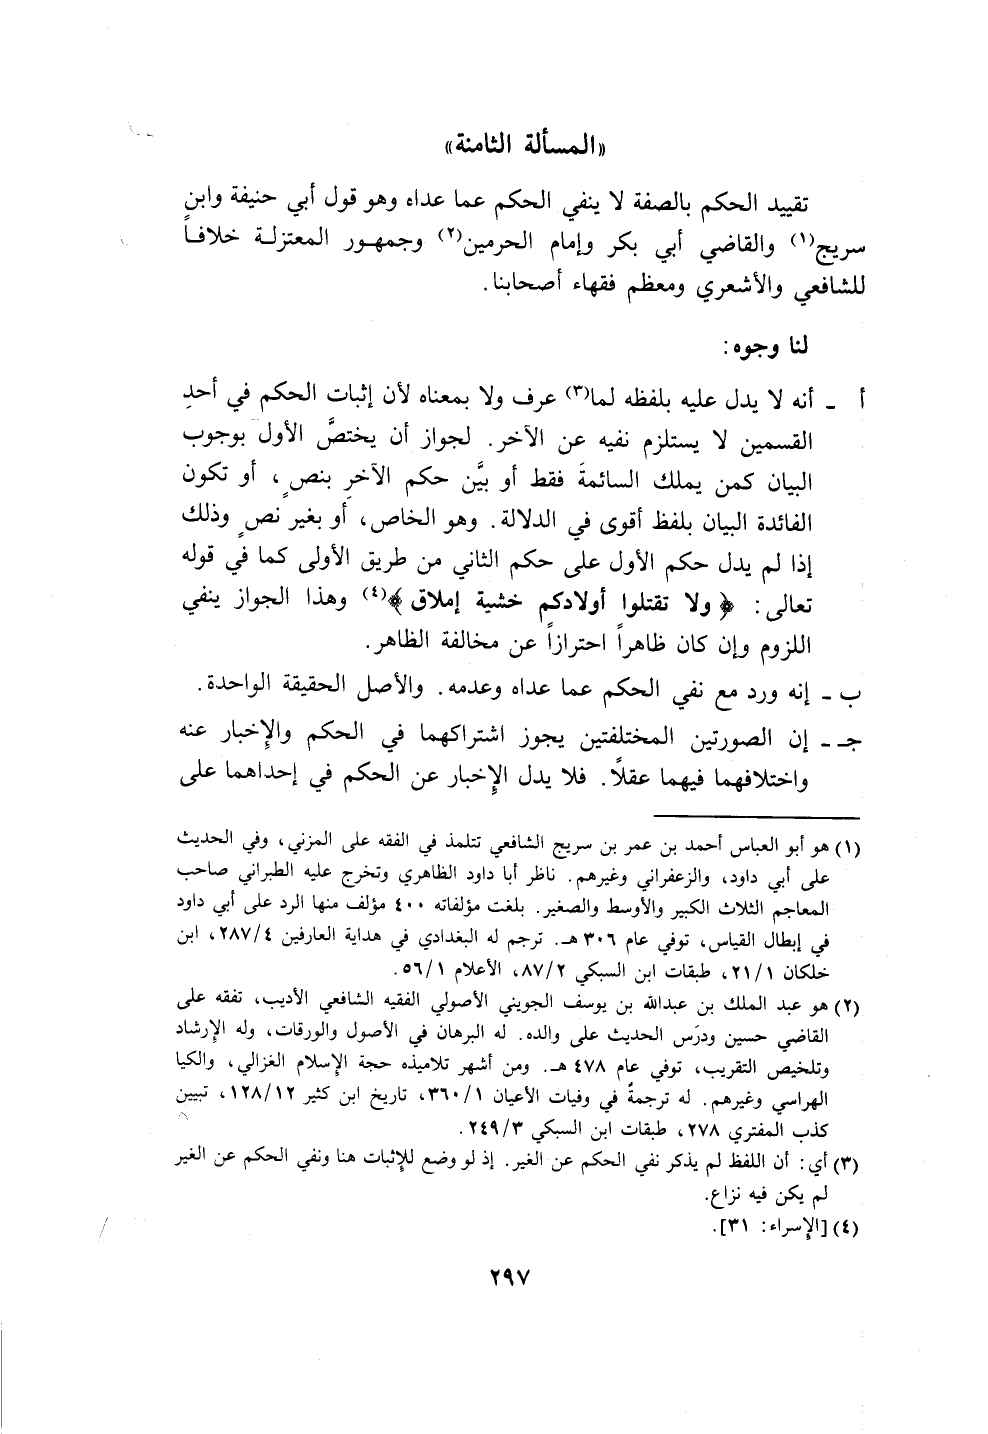 «المسألة الثامنة»
تقييد الحكم بالصفة لا ينفي الحكم عما عداه وهو قول أبي حنيفة وابن
سريج(١) والقاضي أبي بكر وإمام الحرمين(٢) وجمهور المعتزلة خلافاً
للشافعي والأشعري ومعظم فقهاء أصحابنا.
لنا وجوه:
أ ـ أنه لا يدل عليه بلفظه لما(٣) عرف ولا بمعناه لأن إثبات الحكم في أحدِ
القسمين لا يستلزم نفيه عن الآخر. لجواز أن يختصَّ الأول بوجوب
البيان كمن يملك السائمةَ فقط أو بيَّن حكم الآخرِ بنصٍ، أو تكون
الفائدة البيان بلفظ أقوى في الدلالة. وهو الخاص، أو بغير نصٍ وذلك
إذا لم يدل حكم الأول على حكم الثاني من طريق الأولى كما في قوله
تعالى: ﴿ولا تقتلوا أولادكم خشية إملاق﴾(٤) وهذا الجواز ينفي
اللزوم وإن كان ظاهراً احترازاً عن مخالفة الظاهر.
ب ـ إنه ورد مع نفي الحكم عما عداه وعدمه. والأصل الحقيقة الواحدة.
جـ ـ إن الصورتين المختلفتين يجوز اشتراكهما في الحكم والإخبار عنه
واختلافهما فيهما عقلاً. فلا يدل الإخبار عن الحكم في إحداهما على
(١) هو أبو العباس أحمد بن عمر بن سريج الشافعي تتلمذ في الفقه على المزني، وفي الحديث
على أبي داود، والزعفراني وغيرهم. ناظر أبا داود الظاهري وتخرج عليه الطبراني صاحب
المعاجم الثلاث الكبير والأوسط والصغير. بلغت مؤلفاته ٤٠٠ مؤلف منها الرد على أبي داود
في إبطال القياس، توفي عام ٣٠٦ هـ. ترجم له البغدادي في هداية العارفين ٢٨٧/٤، ابن
خلكان ٢١/١، طبقات ابن السبكي ٨٧/٢، الأعلام ٥٦/١.
(٢) هو عبد الملك بن عبدالله بن يوسف الجويني الأصولي الفقيه الشافعي الأديب، تفقه على
القاضي حسين ودرَس الحديث على والده. له البرهان في الأصول والورقات، وله الإرشاد
وتلخيص التقريب، توفي عام ٤٧٨ هـ. ومن أشهر تلاميذه حجة الإسلام الغزالي، والكيا
الهراسي وغيرهم. له ترجمةٌ في وفيات الأعيان ٣٦٠/١، تاريخ ابن كثير ١٢٨/١٢، تبيين
كذب المفتري ٢٧٨، طبقات ابن السبكي ٢٤٩/٣.
(٣) أي: أن اللفظ لم يذكر نفي الحكم عن الغير. إذ لو وضع للإثبات هنا ونفي الحكم عن الغير
لم يكن فيه نزاع.
(٤) [الإسراء: ٣١].
٢٩٧